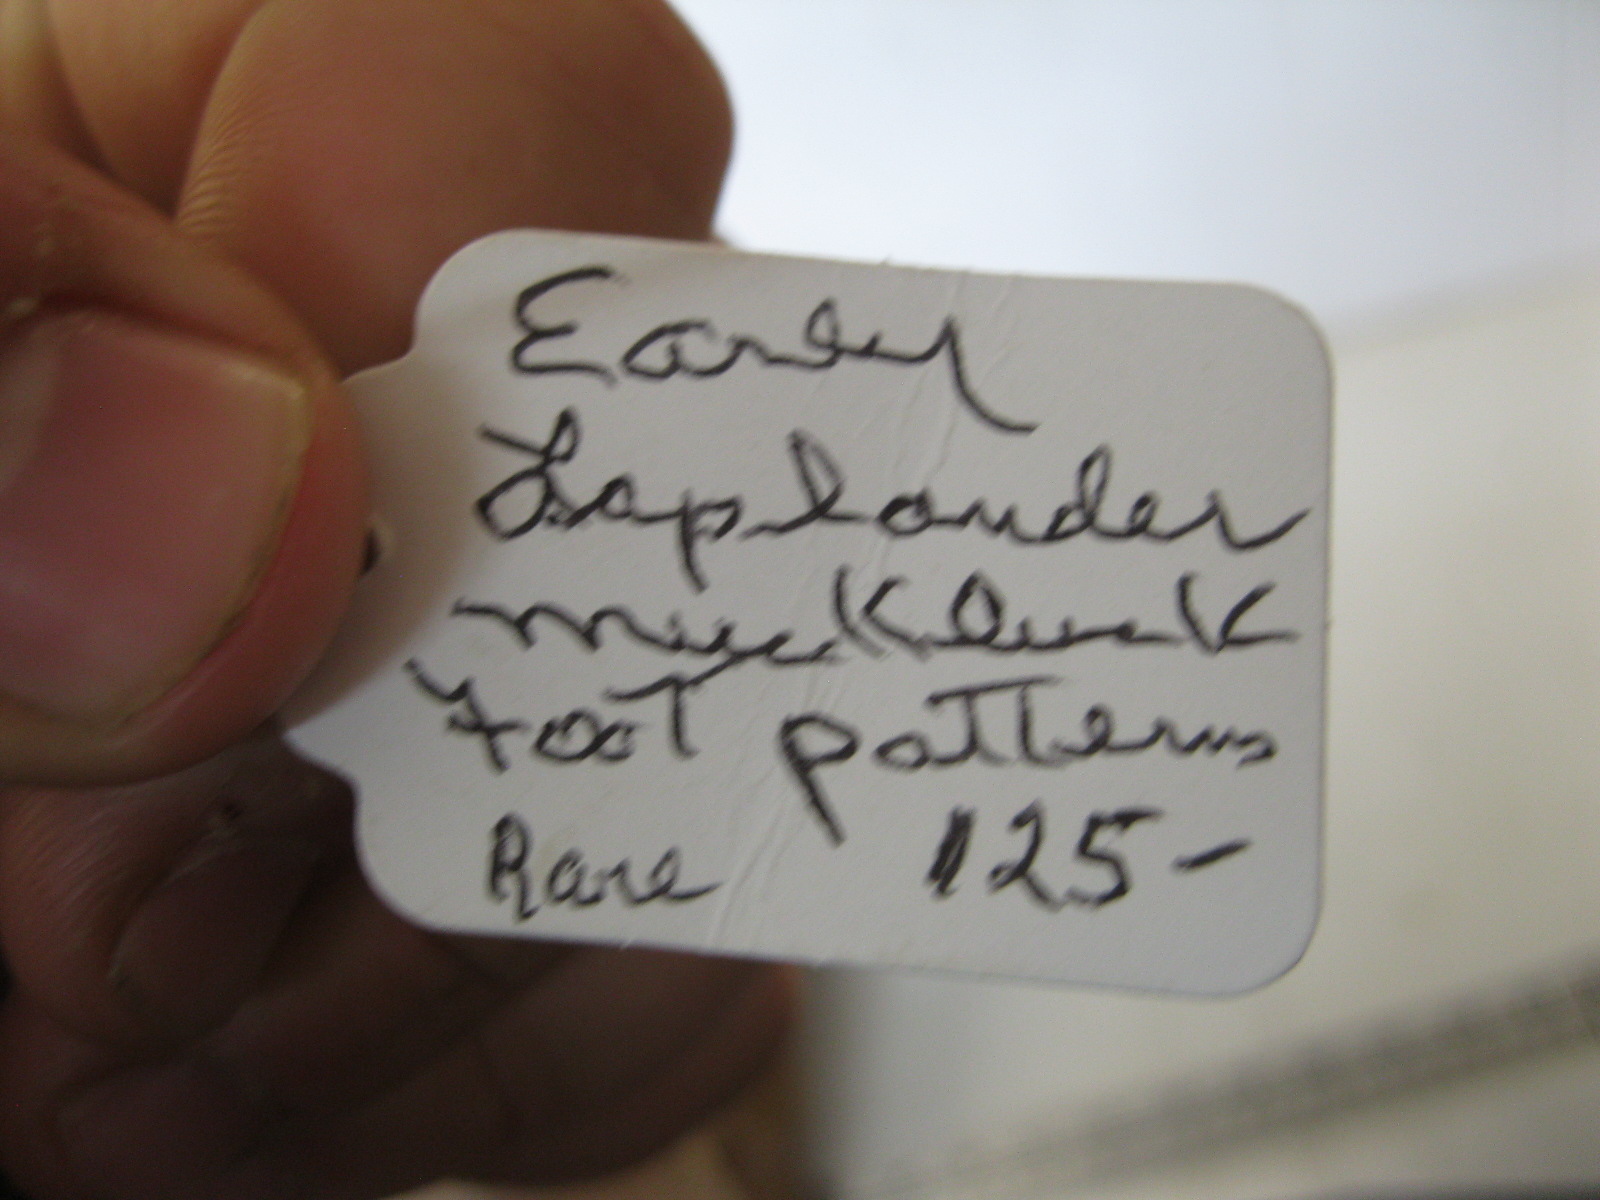 Early
Laplander
muckluck
Foot patterns
Rare 125-